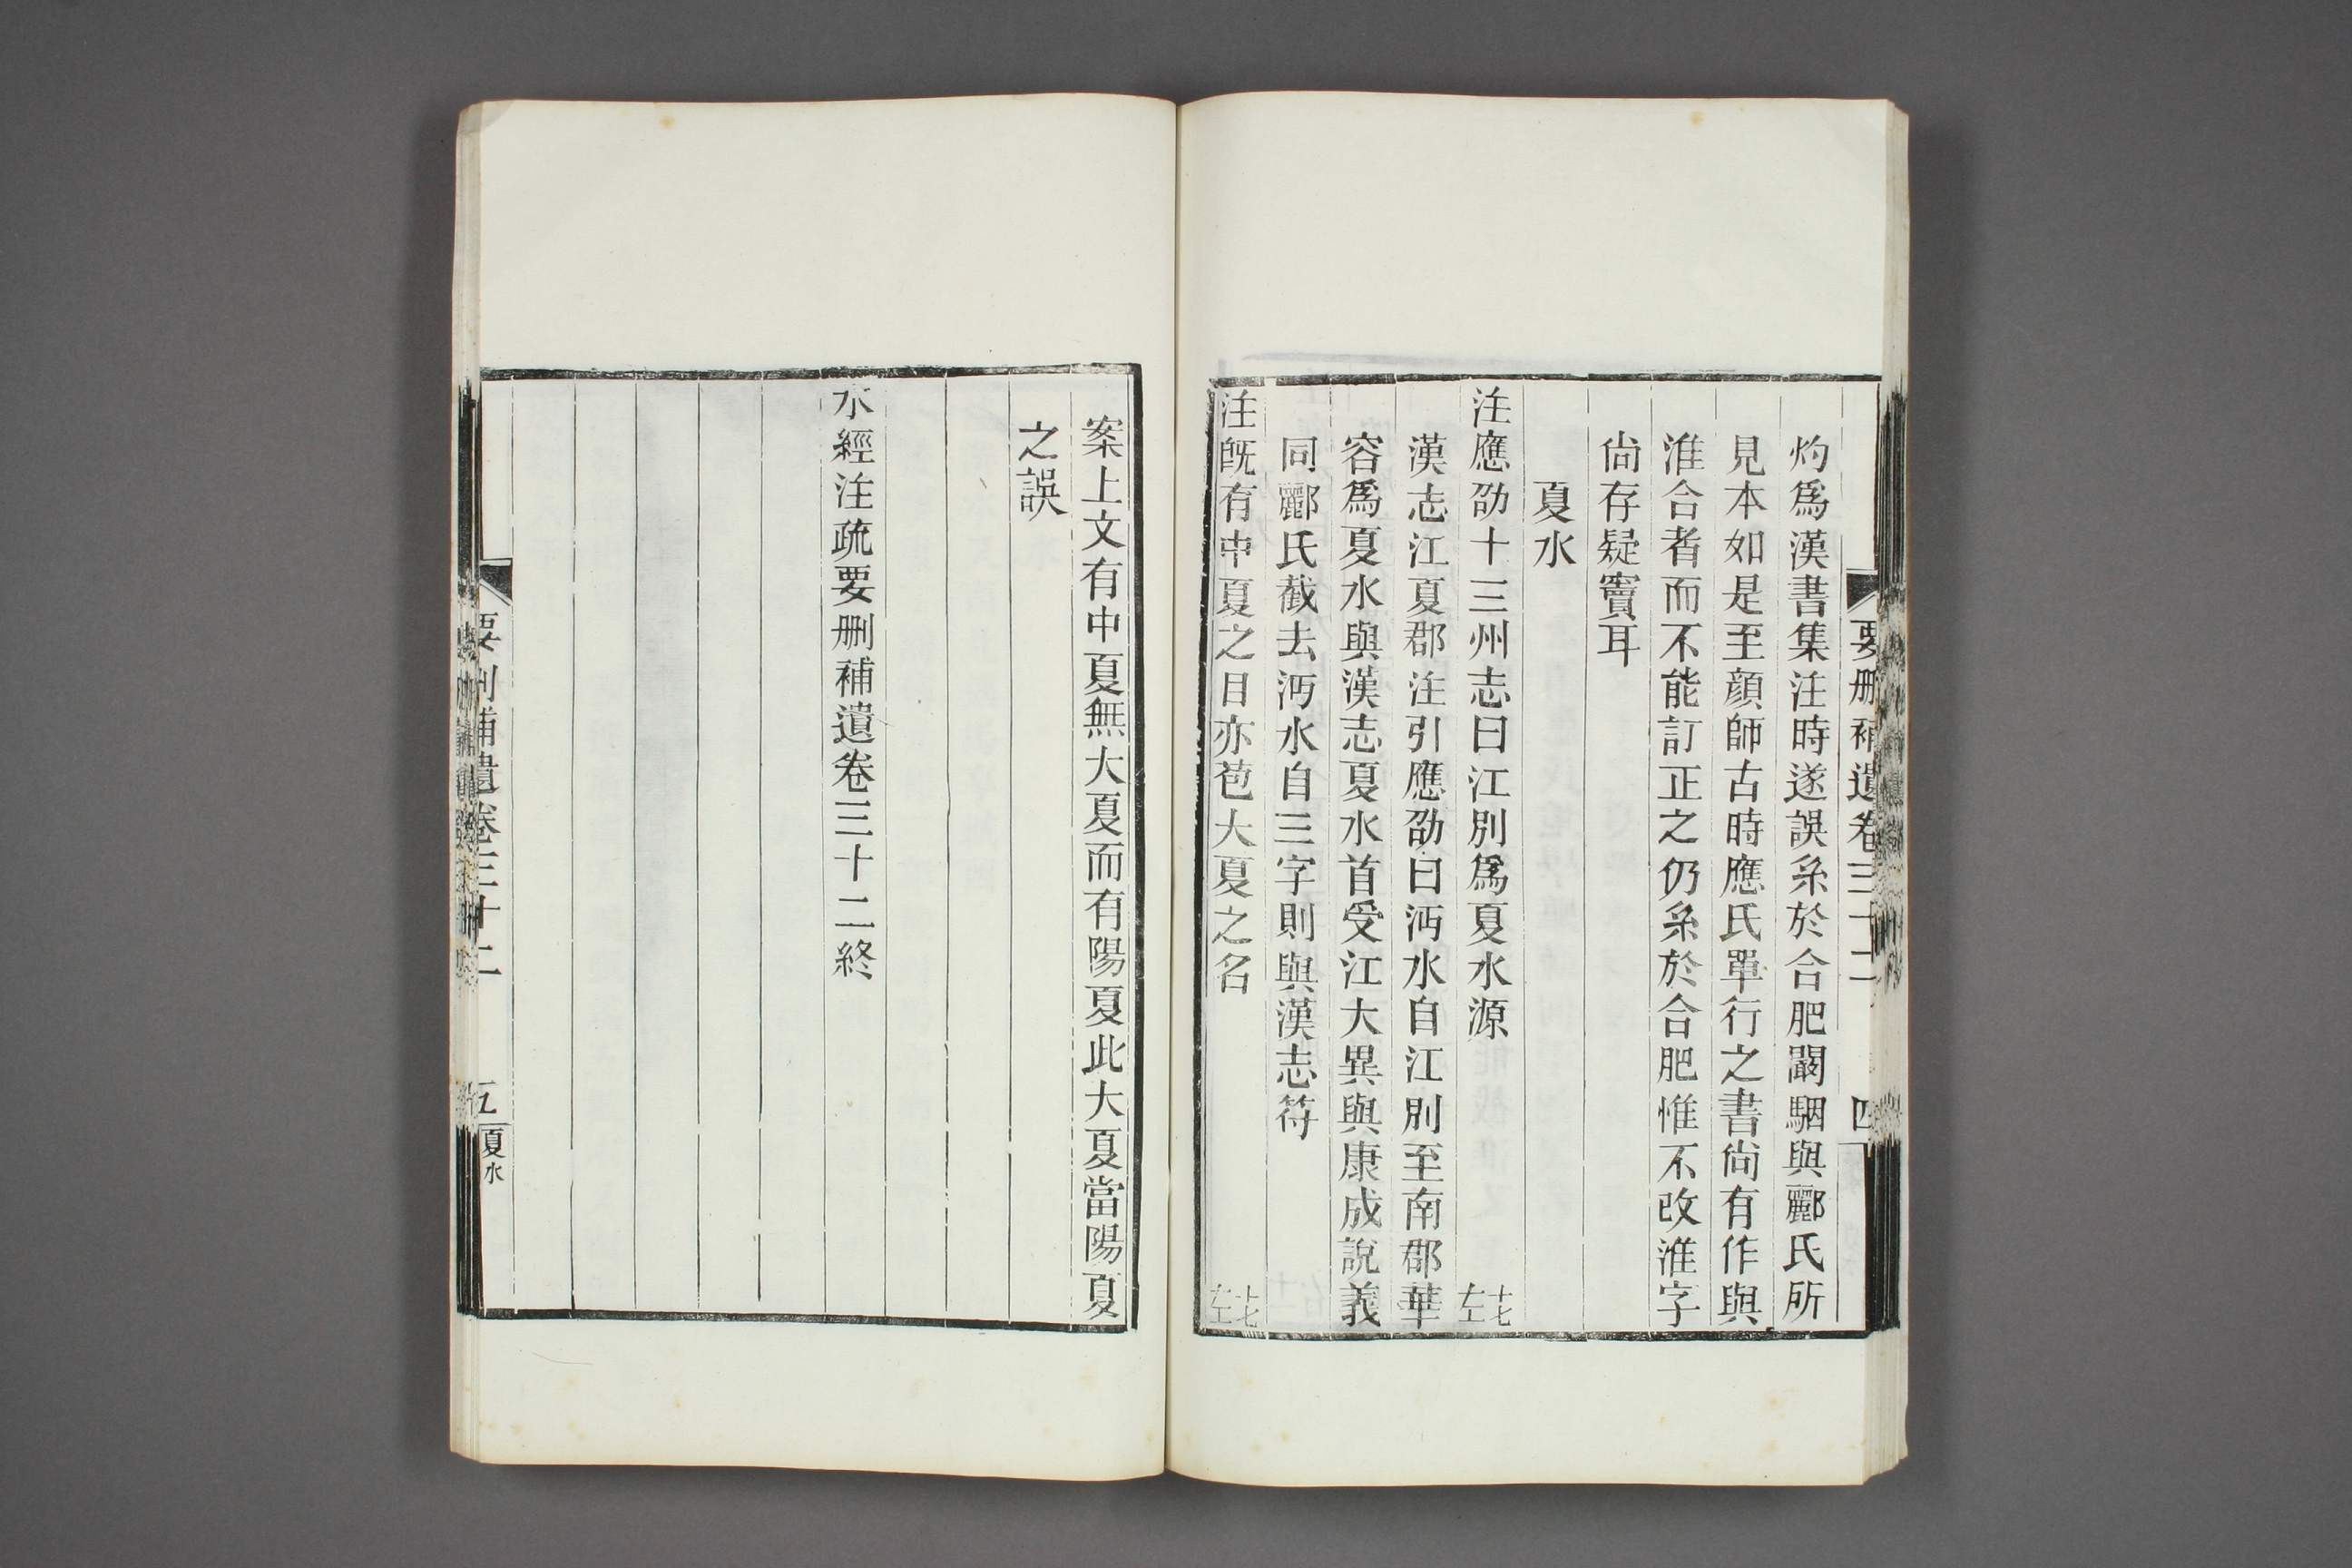 要刪補遺卷三十二
四
灼爲漢書集注時遂誤系於合肥闞駰與酈氏所
見本如是至顔師古時應氏單行之書尙有作與
淮合者而不能訂正之仍系於合肥惟不改淮字
尙存疑竇耳
夏水
注應劭十三州志曰江別爲夏水源 十七左
漢志江夏郡注引應劭曰沔水自江別至南郡華
容爲夏水與漢志夏水首受江大異與康成說義
同酈氏截去沔水自三字則與漢志符
注旣有中夏之目亦苞大夏之名 十七左
案上文有中夏無大夏而有陽夏此大夏當陽夏
之誤
水經注疏要刪補遺卷三十二終
要刪補遺卷三十二
五
夏水